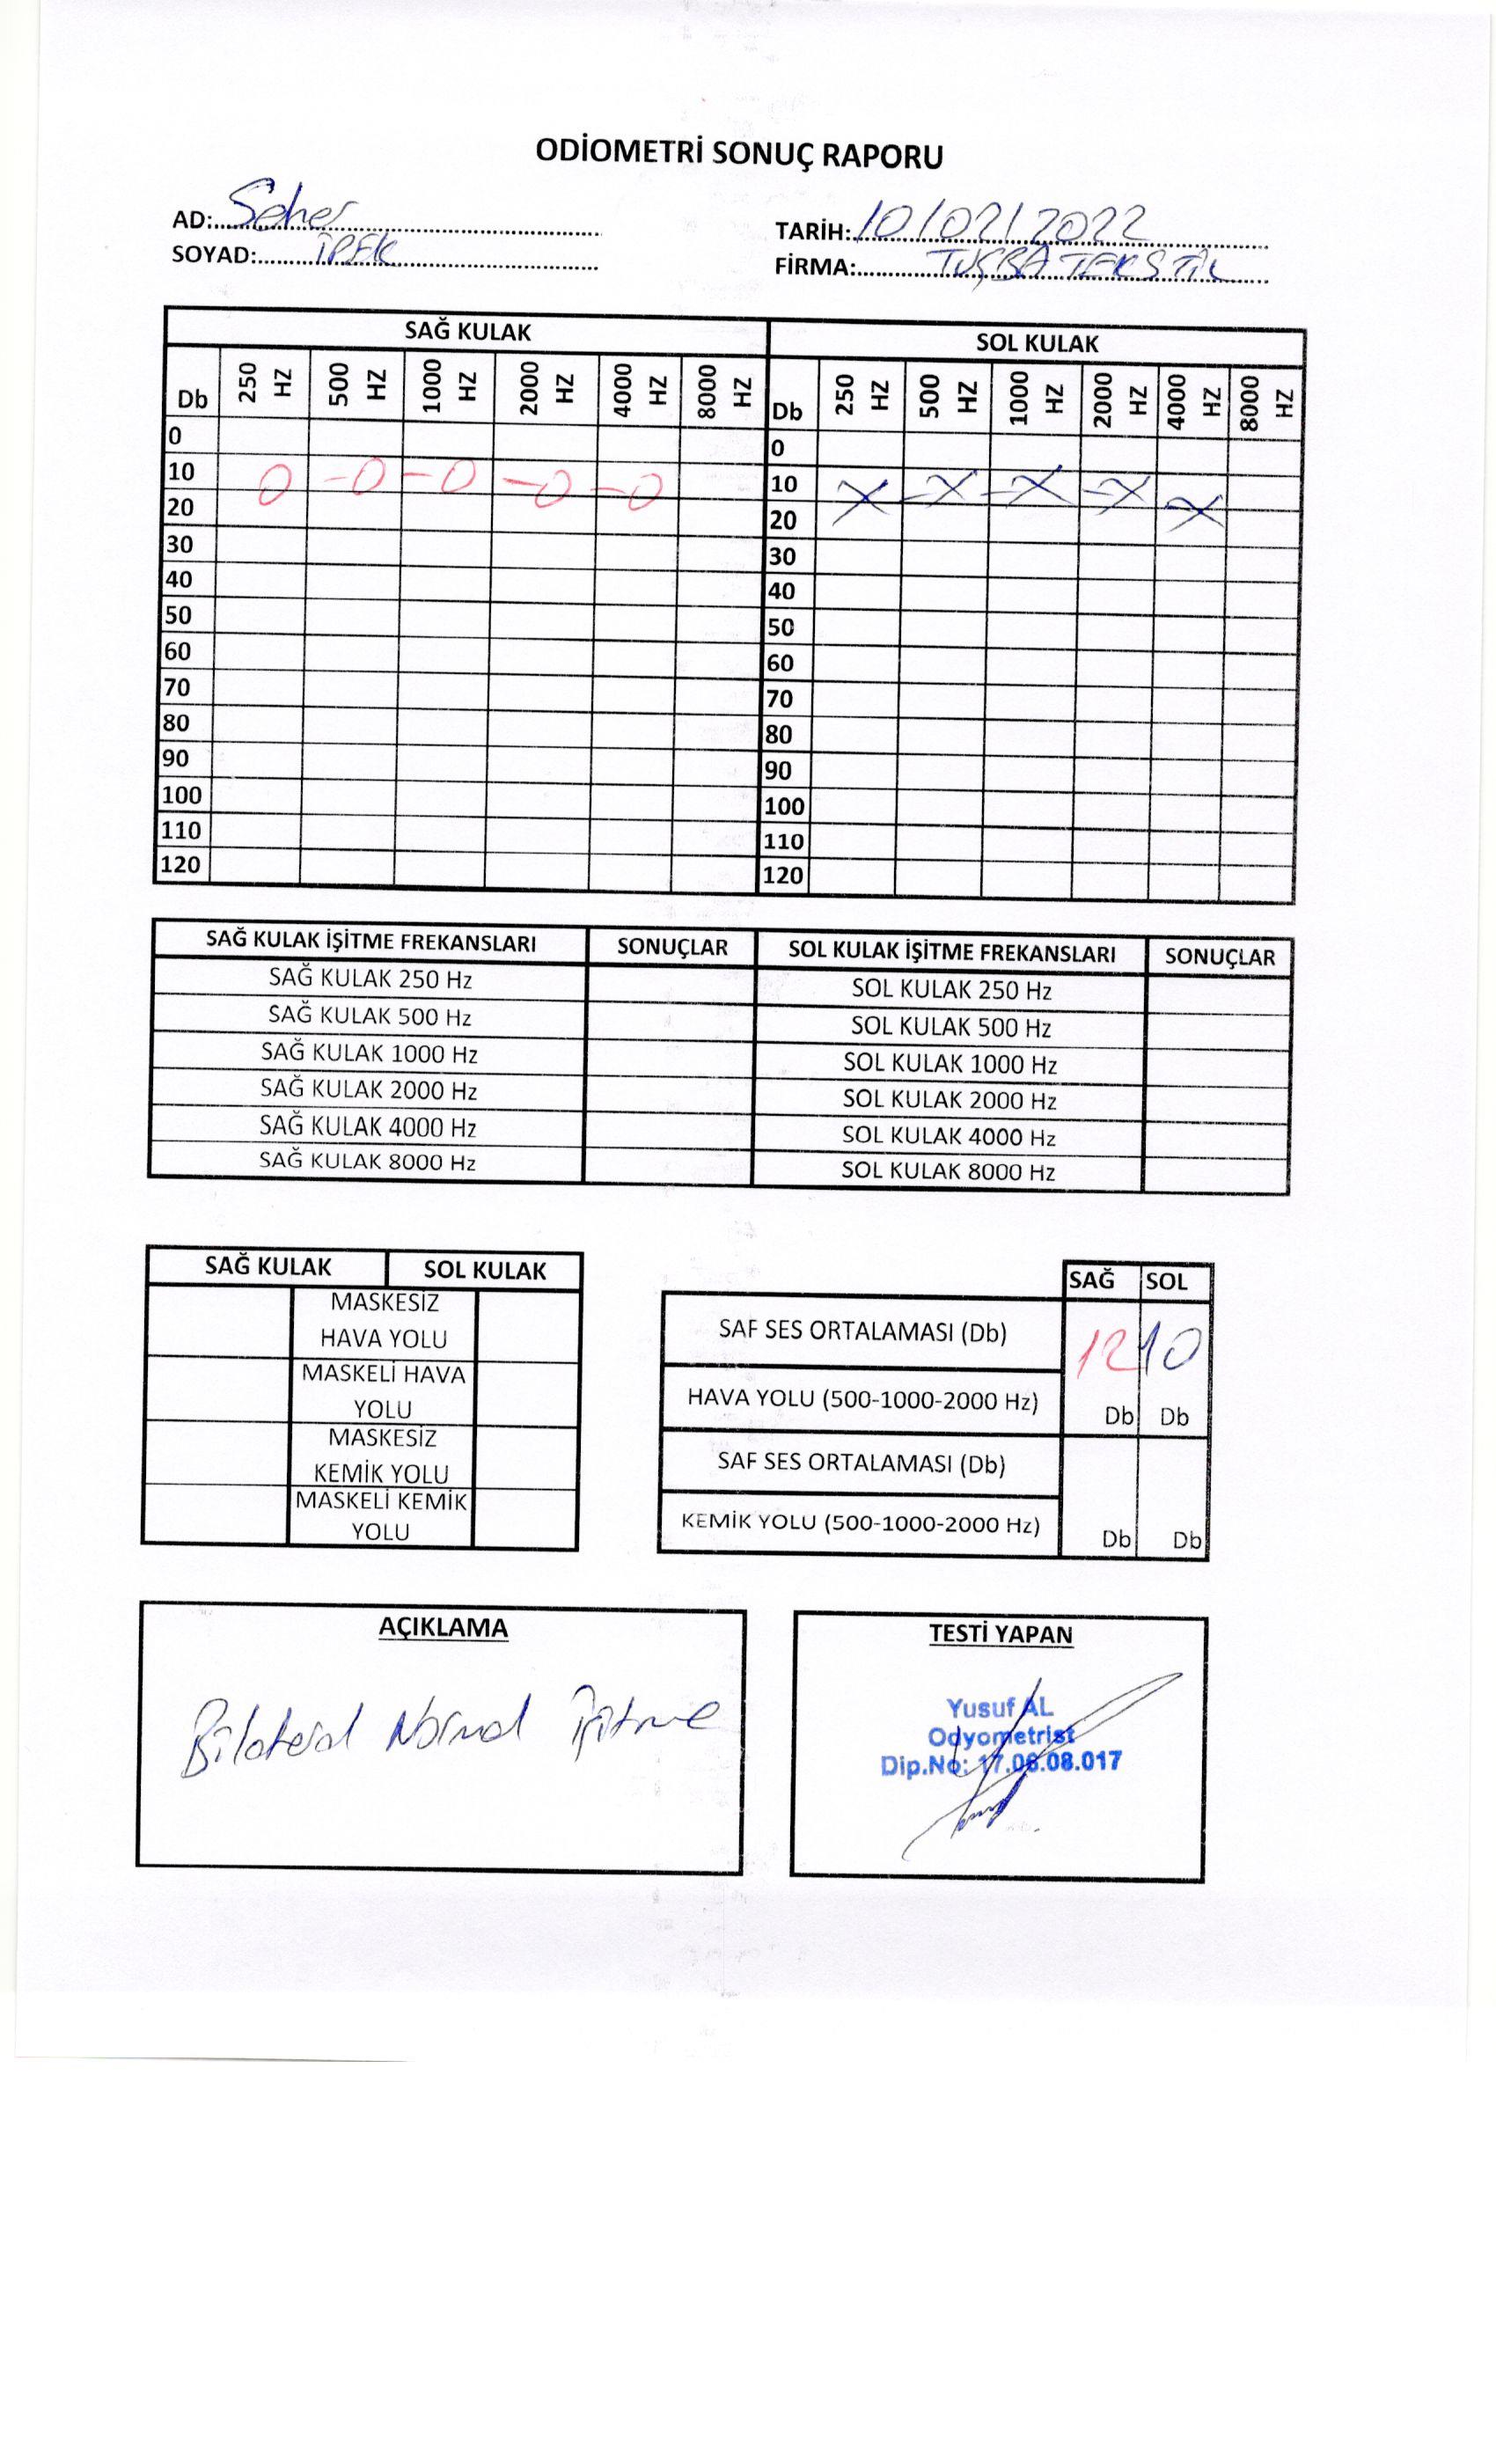 ODİOMETRİ SONUÇ RAPORU
AD: Seher
SOYAD: İPEK
TARİH: 10/02/2022
FİRMA: TUĞBA TEKSTİL
SAĞ KULAK SOL KULAK
Db 250 HZ 500 HZ 1000 HZ 2000 HZ 4000 HZ 8000 HZ Db 250 HZ 500 HZ 1000 HZ 2000 HZ 4000 HZ 8000 HZ
0 0
10 O -O -O -O -O 10 X -X -X -X -X
20 20
30 30
40 40
50 50
60 60
70 70
80 80
90 90
100 100
110 110
120 120
SAĞ KULAK İŞİTME FREKANSLARI SONUÇLAR SOL KULAK İŞİTME FREKANSLARI SONUÇLAR
SAĞ KULAK 250 Hz SOL KULAK 250 Hz
SAĞ KULAK 500 Hz SOL KULAK 500 Hz
SAĞ KULAK 1000 Hz SOL KULAK 1000 Hz
SAĞ KULAK 2000 Hz SOL KULAK 2000 Hz
SAĞ KULAK 4000 Hz SOL KULAK 4000 Hz
SAĞ KULAK 8000 Hz SOL KULAK 8000 Hz
SAĞ KULAK SOL KULAK
MASKESİZ
HAVA YOLU
MASKELİ HAVA
YOLU
MASKESİZ
KEMİK YOLU
MASKELİ KEMİK
YOLU
SAĞ SOL
SAF SES ORTALAMASI (Db) 12 10
HAVA YOLU (500-1000-2000 Hz) Db Db
SAF SES ORTALAMASI (Db)
KEMİK YOLU (500-1000-2000 Hz) Db Db
AÇIKLAMA
Bilateral Normal İşitme
TESTİ YAPAN
Yusuf AL
Odyometrist
Dip.No: 17.06.08.017